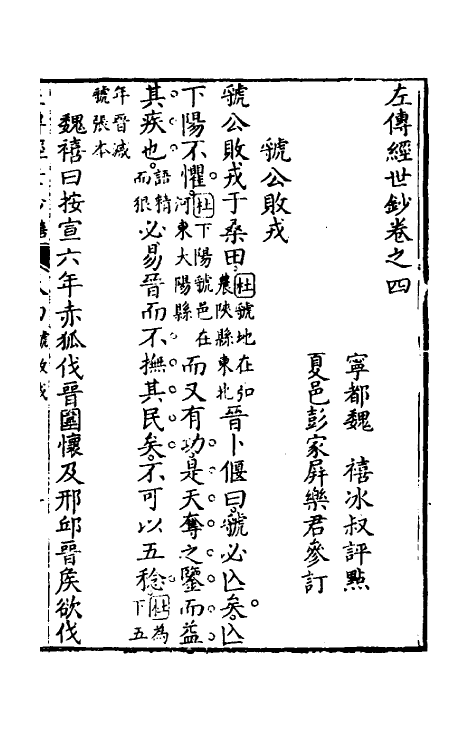 左傳經世鈔卷之四
寧都魏　禧冰叔評點
夏邑彭家屏樂君參訂
虢公敗戎
虢公敗戎于桑田杜虢地在弘農陝縣東北晉卜偃曰虢必亾矣亾
下陽不懼杜下陽虢邑在河東大陽縣而又有功是天奪之鑒而益
其疾也語精而狠必易晉而不撫其民矣不可以五稔杜為下五
年晉滅虢張本
魏禧曰按宣六年赤狐伐晉圍懷及邢邱晉矦欲伐